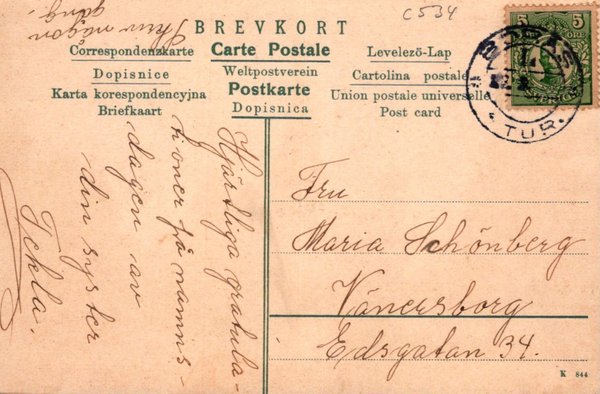 BREVKORT
C534
Correspondenzkarte Carte Postale Levelező-Lap
Dopisnice Weltpostverein Cartolina postale
Karta korespondencyjna Postkarte Union postale universelle
Briefkaart Dopisnica Post card
5 5
ÖRE
TUR.
Skriv någon
gång.
Hjärtliga gratula-
tioner på namns-
dagen av
din syster
Tekla.
Fru
Maria Schönberg
Vänersborg
Edsgatan 34.
K 844